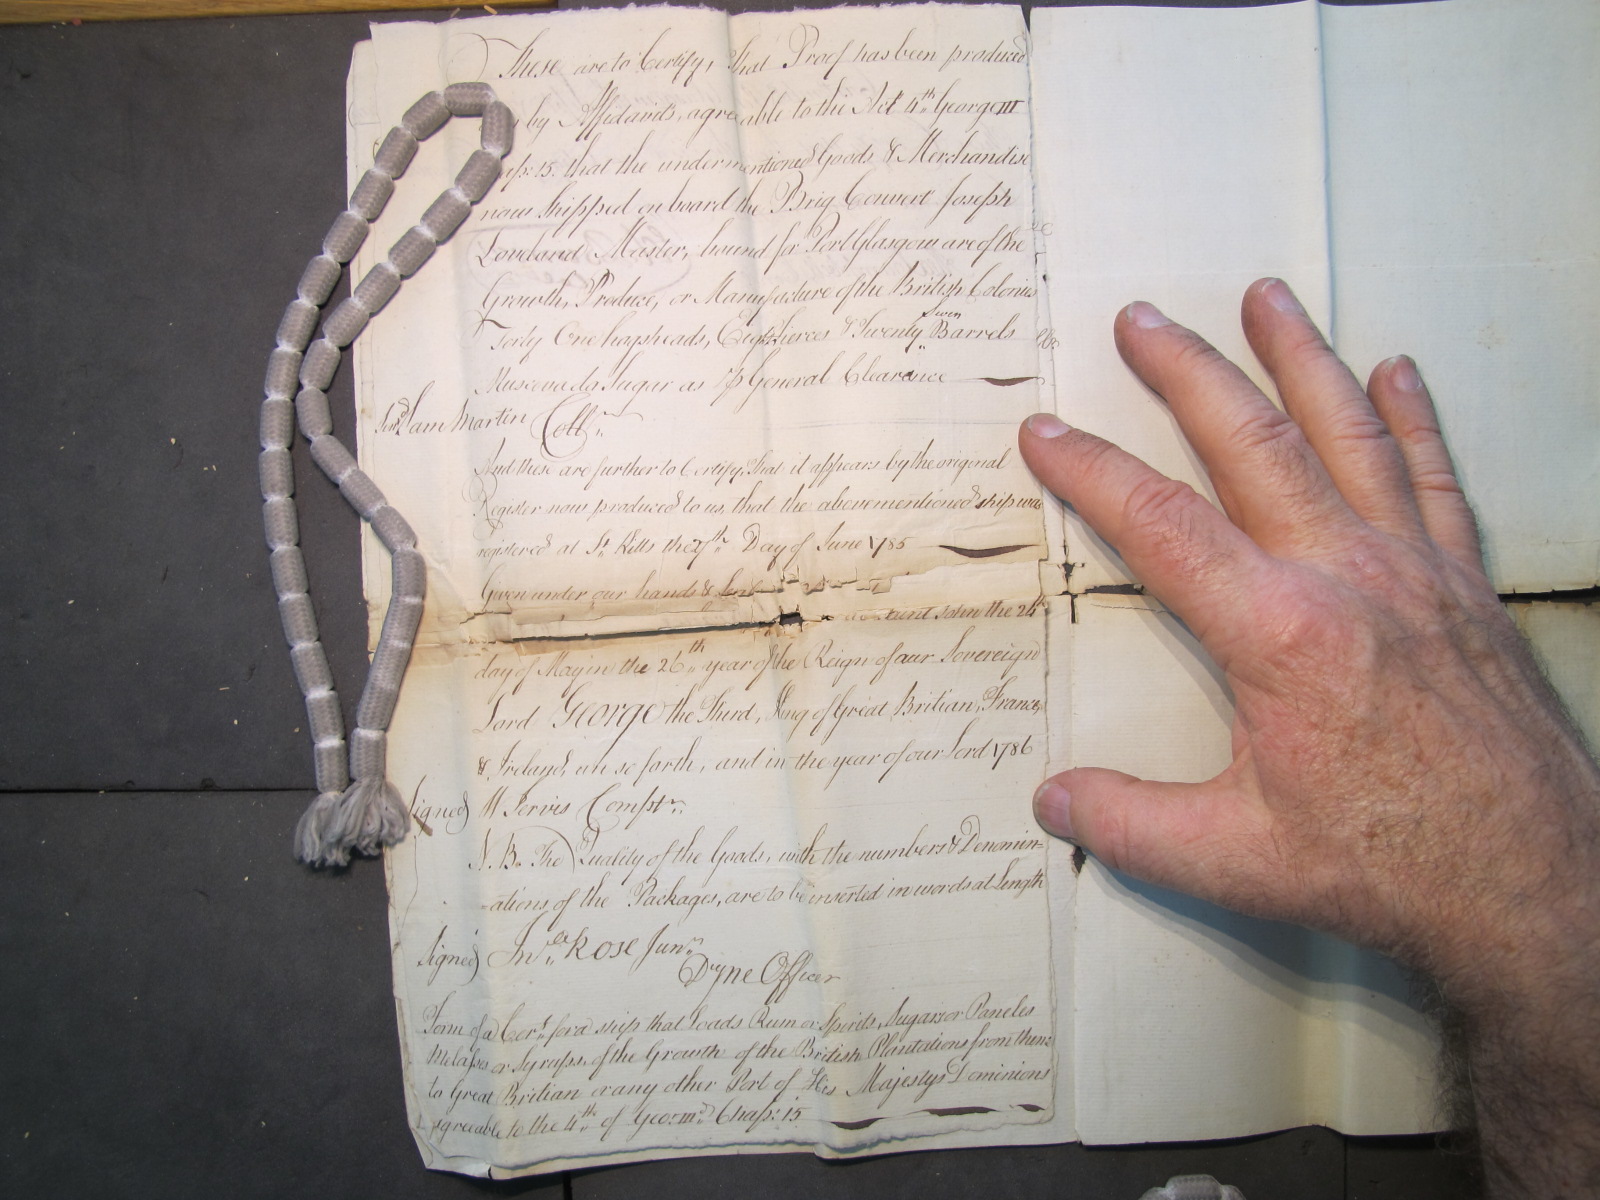 These are to Certify, that Proof has been produced
by Affidavits, agreeable to the Act 4th George III
15. that the undermentioned Goods & Merchandise
now Shipped on board the Brig Convert Joseph
Loveland Master, bound for Port Glasgow are of the
Growth, Produce, or Manufacture of the British Colonies
Seven
Forty One hogsheads, Eight Tierces & Twenty Barrels
Muscovado Sugar as p General Clearance
Sam Martin Collr
And these are further to Certify, that it appears by the original
Register now produced to us, that the abovementioned ship was
registered at St Kitts the 7th Day of June 1785
Given under our hands &
Saint John the 24th
day of May in the 26th year of the Reign of our Sovereign
Lord George the Third, King of Great Britian, France
& Ireland, an so forth, and in the year of our Lord 1786
Signed W Jervis Compt
N.B. The Quality of the Goods, with the numbers & Denomin-
-ations, of the Packages, are to be inserted in words at Length
Signed Rose Junr
Officer
Form of a Cert for a ship that Loads Rum or Spirits, Sugars or Paneles
Melasses or Syraps, of the Growth of the British Plantations from thence
to Great Britian or any other Port of His Majestys Dominions
Agreeable to the 4th of Geo: IIId Chap: 15